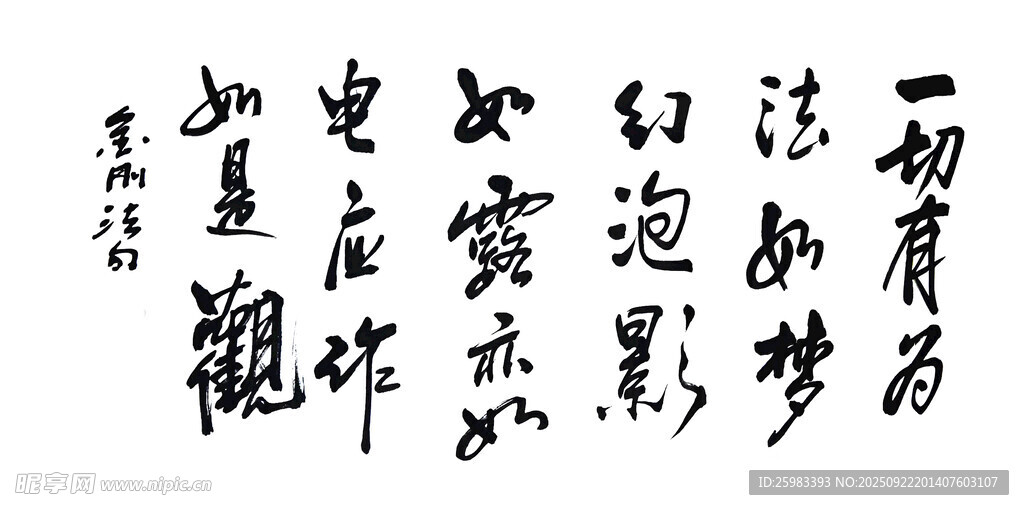 一切有为
法如梦
幻泡影
如露亦如
电应作
如是觀
金刚法句
昵享网 www.nipic.cn
ID:25983393 NO:20250922201407603107